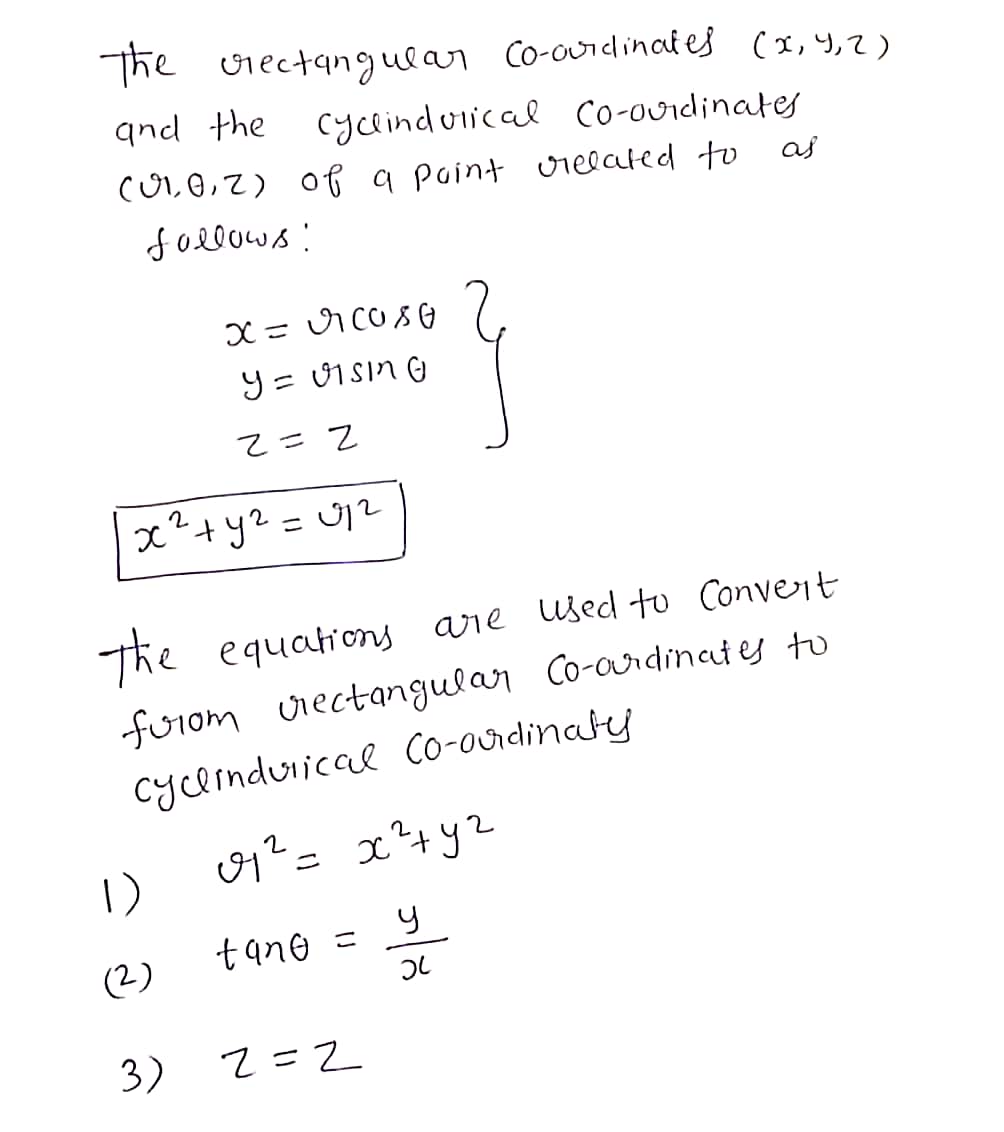 The rectangular co-ordinates (x, y, z)
and the cyclindrical co-ordinates
(r, θ, z) of a point related to as
follows:
x = r cos θ
y = r sin θ
z = z
x² + y² = r²
The equations are used to convert
from rectangular co-ordinates to
cyclindrical co-ordinates
1) r² = x² + y²
(2) tan θ = y/x
3) z = z